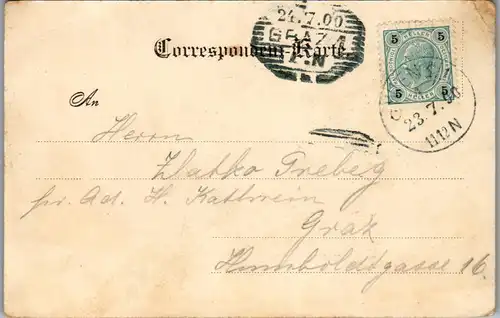 24.7.00
GRAZ 1
Correspondenz-Karte.
5 5
HELLER
5 5
23.7.00
11-12 N
An
Herrn
Zlatko Trebeg
pr. Ad. H. Kattwein
Graz
Humboldtgasse 16.